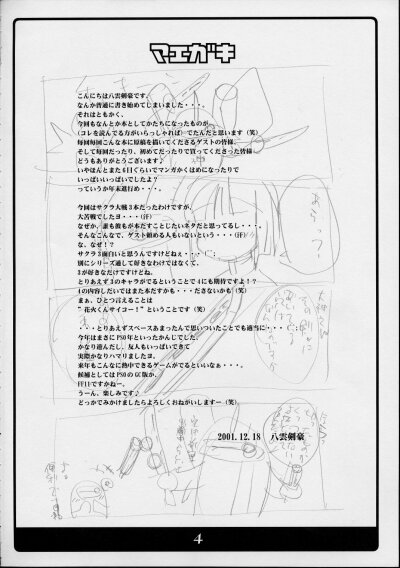 マエガキ
こんにちは八雲剣豪です。
なんか普通に書き始めてしまいました・・・。
それはともかく、
今回もなんとか本としてかたちになったものが
(コレを読んでる方がいらっしゃれば)でたんだと思います(笑)
毎回毎回こんな本に原稿を描いてくださるゲストの皆様、
そして毎回だったり、初めてだったりで買ってくださった皆様
どうもありがとうございます♪
いやほんとまた6日ぐらいでマンガかくはめになったりで
いっぱいいっぱいでしたよ?
っていうか年末進行め・・・。
今回はサクラ大戦3本だったわけですが、
大苦戦でしたヨ・・・(汗)
なぜか、誰も彼もが本だすことじたいネタだと思ってるし・・・。
そんなこんなで、ゲスト頼める人もいないという・・・(汗)
な、なぜ!?
サクラ3面白いと思うんですけどねぇ・・・(^^;
別にシリーズ通して好きなわけではなくて、
3が好きなだけですけどね。
とりあえず3のキャラがでるということで4にも期待ですよ!?
4の内容しだいではまた本だすかも・・・ださないかも(笑)
まぁ、ひとつ言えることは
"花火くんサイコー!"ということです(笑)
・・・とりあえずスペースあまったんで思いついたことでも適当に・・・
今年はまさにPSO年といったかんじでした。
かなり遊んだし、友人もいっぱいできて
実際かなりハマりましたヨ。
来年もこんなに熱中できるゲームがでるといいなぁ・・・。
候補としてはPSOのGC版か、
FF11ですかねー。
うーん、楽しみです♪
どっかでみかけましたらよろしくおねがいしますー(笑)。
2001.12.18 八雲剣豪
あらっ
4